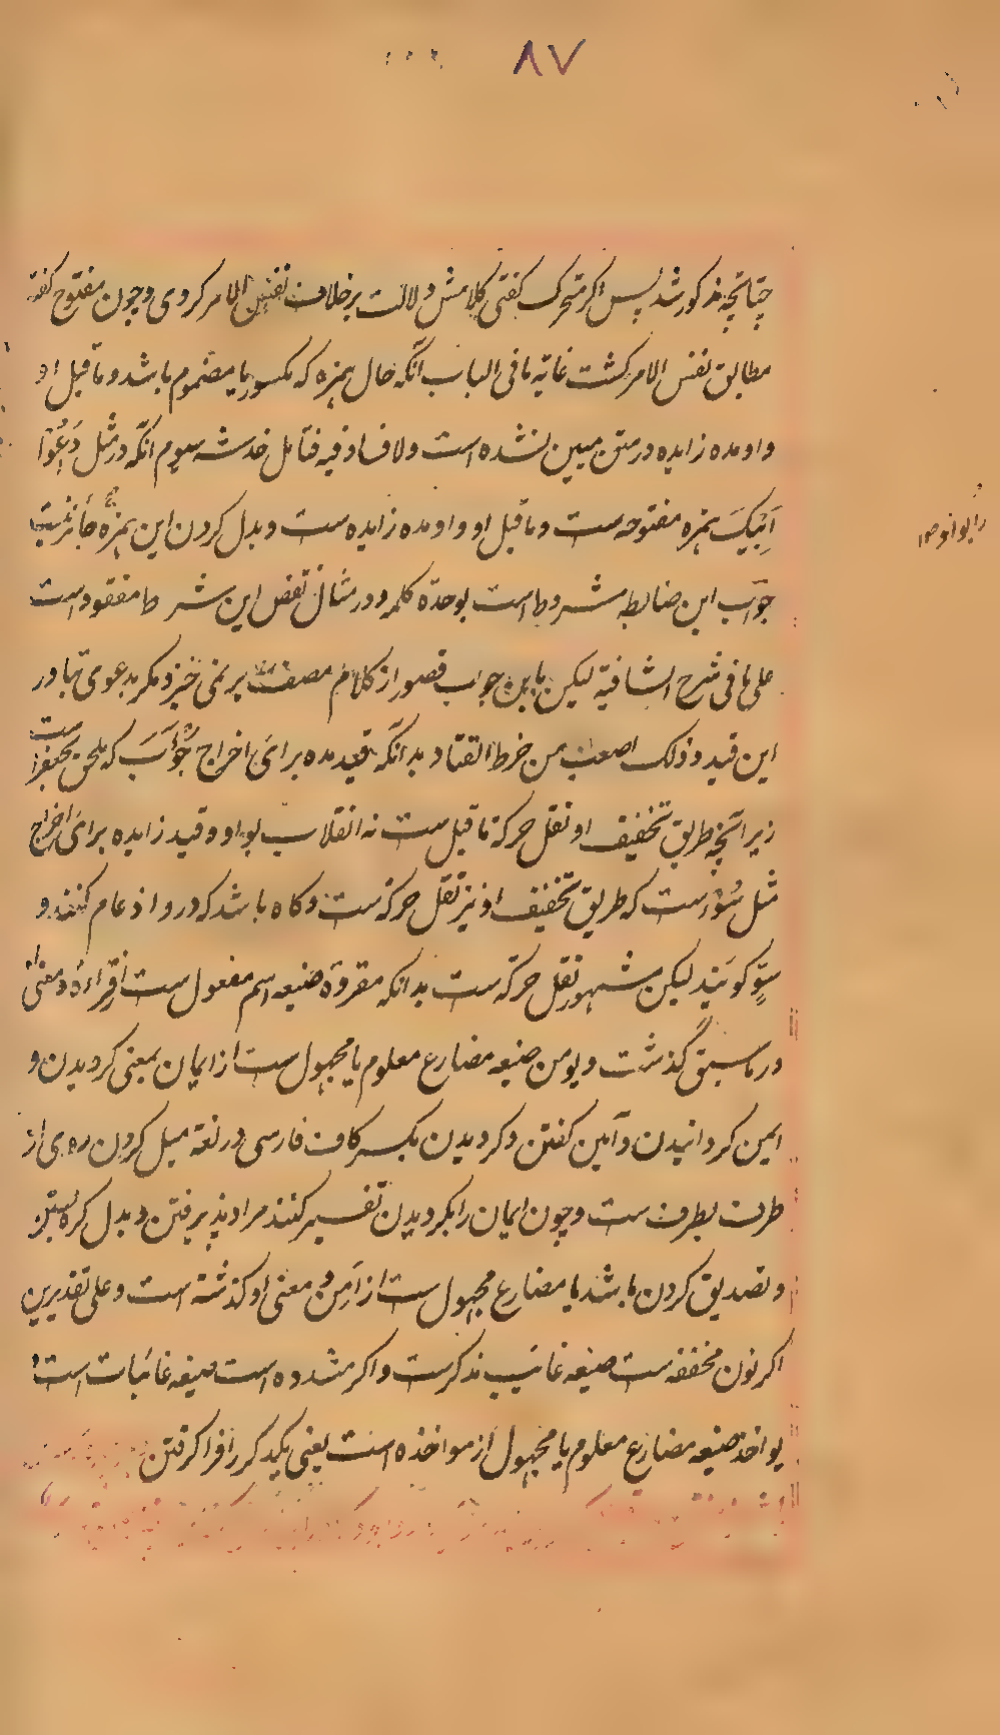 ۸۷
چنانچه مذکور شد پس اگر متحرک گفتی کلامش دلالت بر خلاف نفس الامر کردی و چون مفتوح گفته
مطابق نفس الامر گشت غایة ما فی الباب آنکه حال همزه که مکسور یا مضموم باشد و ماقبل او
واو مده زایده در متن مبین نشده است ولا فساد فیه فتامل خدشه سیوم آنکه در مثل دَعُوا
اَبِیکَ همزه مفتوحه ست و ماقبل او واو مده زایده ست و بدل کردن این همزه جائز نیست
جوآب این ضابطه مشروط است بوحدة کلمه و در مثال نقض این شرط مفقود است
علی ما فی شرح الشافیة لیکن باین جواب قصور از کلام مصنف بر نمی خیزد مگر بدعوی تبادر
این قید و ذلک اصعب من خرط القتاد بدانکه قید مده برای اخراج جَوْأَبَ که ملحق بجعفر ست
زیرا که طریق تخفیف او نقل حرکة ماقبل ست نه انقلاب بواو و قید زایده برای اخراج
مثل سُوْء ست که طریق تخفیف او نیز نقل حرکة ست و گاه باشد که در و ادغام کنند و
سُوّ گویند لیکن مشهور نقل حرکة ست بدانکه مقروة صیغه اسم مفعول ست از قراءة و معنی او
در ما سبق گذشت و یومن صیغه مضارع معلوم یا مجهول ست از ایمان بمعنی گرویدن و
ایمن گردانیدن و آمین گفتن و گرویدن بکسر کاف فارسی در لغة میل کردن روی از
طرف بطرف ست و چون ایمان را بگرویدن تفسیر کنند مراد پذیرفتن و بدل گره بستن
و تصدیق کردن باشد یا مضارع مجهول ست از اَمن و معنی او گذشته است و علی تقدیرین
اگر نون مخففه ست صیغه غایب مذکر ست و اگر مشدده است صیغه غائبات است
یواخذ صیغه مضارع معلوم یا مجهول از مواخذه است یعنی یکدیگر را فرا گرفتن